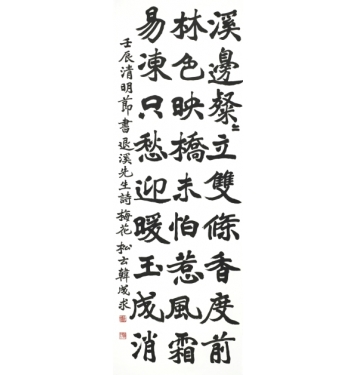 溪邊粲〻立雙條香度前
林色映橋未怕惹風霜
易凍只愁迎暖玉成消
壬辰清明節書退溪先生詩梅花 松玄韓成求